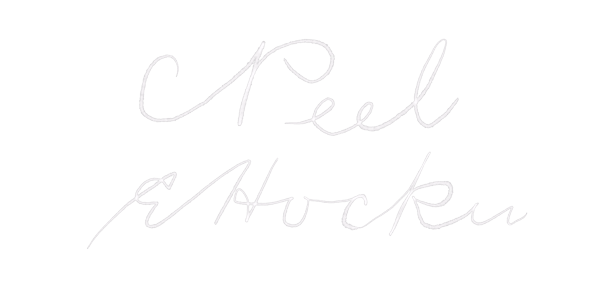 Peel
E Hocku